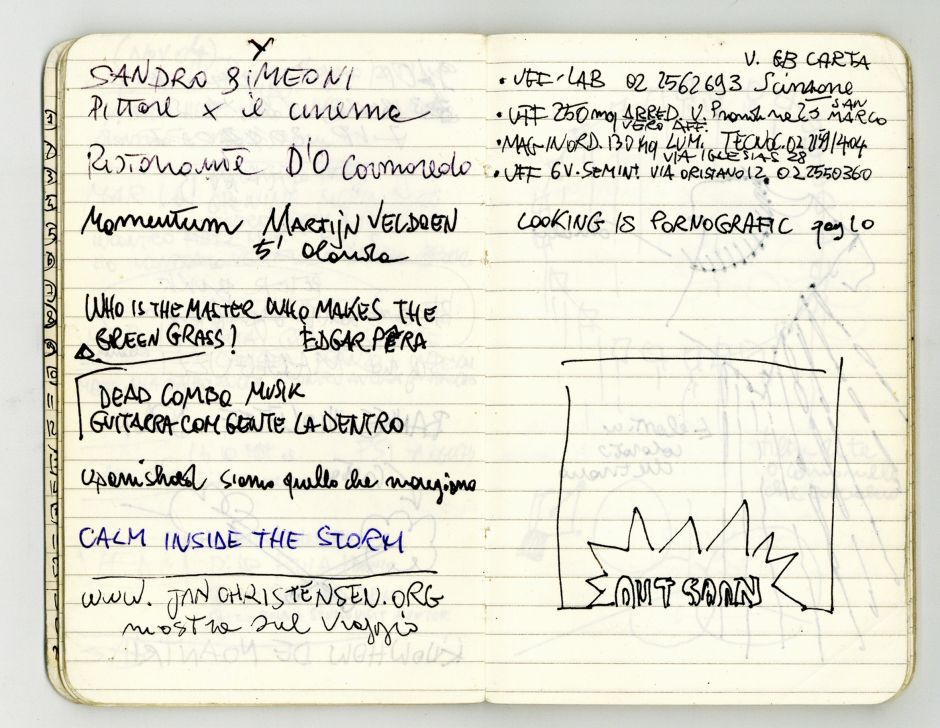 SANDRO SIMEONI
Pittore x il cinema
Ristorante D'O Cornaredo
Momentum MARTIJN VELDOEN
5' Olanda
WHO IS THE MASTER WHO MAKES THE
GREEN GRASS! EDGAR PERA
DEAD COMBO MUSIK
GUITARRA COM GENTE LA DENTRO
Upanishad siamo quello che mangiamo
CALM INSIDE THE STORM
WWW. JANCHRISTENSEN.ORG
mostra sul viaggio
V. GB CARTA
• UFF-LAB 02 2562693 Simone
• UFF 250 mq ARRED. V. SAN MARCO
VERO AFF.
• MAG-IN ORD. 130 mq LUM. TECNOC.
VIA IGLESIAS 28
• UFF 6 V. SEMINT. VIA ORISTANO 12, 02 2550360
LOOKING IS PORNOGRAFIC pag 10
OUT SOON
1
2
3
4
5
6
7
8
9
10
11
12